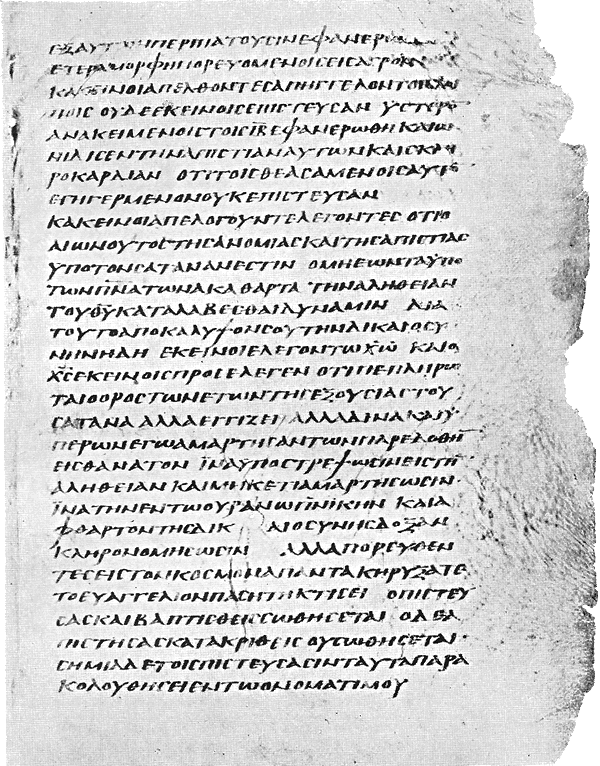 ΕΞΑΥΤΩΝΠΕΡΙΠΑΤΟΥΣΙΝΕΦΑΝΕΡΩ
ΕΤΕΡΑΜΟΡΦΗΠΟΡΕΥΟΜΕΝΟΙΣΕΙΣΑΓΡΟΝ
ΚΑΚΕΙΝΟΙΑΠΕΛΘΟΝΤΕΣΑΠΗΓΓΕΛΟΝΤΟΙΣΛΟΙ
ΠΟΙΣ ΟΥΔΕΕΚΕΙΝΟΙΣΕΠΙΣΤΕΥΣΑΝ ΥΣΤΕΡΟ
ΑΝΑΚΕΙΜΕΝΟΙΣΤΟΙΣΙΒΕΦΑΝΕΡΩΘΗ ΚΑΙΩ
ΝΙΔΙΣΕΝΤΗΝΑΠΙΣΤΙΑΝΑΥΤΩΝΚΑΙΣΚΛΗ
ΡΟΚΑΡΔΙΑΝ ΟΤΙΤΟΙΣΘΕΑΣΑΜΕΝΟΙΣΑΥΤΟ
ΕΓΗΓΕΡΜΕΝΟΝΟΥΚΕΠΙΣΤΕΥΣΑΝ
ΚΑΚΕΙΝΟΙΑΠΕΛΟΓΟΥΝΤΕΛΕΓΟΝΤΕΣ ΟΤΙΟ
ΑΙΩΝΟΥΤΟΣΤΗΣΑΝΟΜΙΑΣΚΑΙΤΗΣΑΠΙΣΤΙΑΣ
ΥΠΟΤΟΝΣΑΤΑΝΑΝΕΣΤΙΝ ΟΜΗΕΩΝΤΑΥΠΟ
ΤΩΝΠΝΑΤΩΝΑΚΑΘΑΡΤΑ ΤΗΝΑΛΗΘΕΙΑΝ
ΤΟΥΘΥΚΑΤΑΛΑΒΕΣΘΑΙΔΥΝΑΜΙΝ ΔΙΑ
ΤΟΥΤΟΑΠΟΚΑΛΥΨΟΝΣΟΥΤΗΝΔΙΚΑΙΟΣΥ
ΝΗΝΗΔΗ ΕΚΕΙΝΟΙΕΛΕΓΟΝΤΩΧΩ ΚΑΙΟ
ΧΣΕΚΕΙΝΟΙΣΠΡΟΣΕΛΕΓΕΝ ΟΤΙΠΕΠΛΗΡΩ
ΤΑΙΟΟΡΟΣΤΩΝΕΤΩΝΤΗΣΕΞΟΥΣΙΑΣΤΟΥ
ΣΑΤΑΝΑ ΑΛΛΑΕΓΓΙΖΕΙ ΑΛΛΑΔΙΝΑΚΑΙΥ
ΠΕΡΩΝΕΓΩΑΜΑΡΤΗΣΑΝΤΩΝΠΑΡΕΔΟΘΗ
ΕΙΣΘΑΝΑΤΟΝ ΪΝΑΥΠΟΣΤΡΕΨΩΣΙΝΕΙΣΤΗ
ΑΛΗΘΕΙΑΝ ΚΑΙΜΗΚΕΤΙΑΜΑΡΤΗΣΩΣΙΝ
ΪΝΑΤΗΝΕΝΤΩΟΥΡΑΝΩΠΝΙΚΗΝ ΚΑΙΑ
ΦΘΑΡΤΟΝΤΗΣΔΙΚΑΙΟΣΥΝΗΣΔΟΞΑΝ
ΚΛΗΡΟΝΟΜΗΣΩΣΙΝ ΑΛΛΑΠΟΡΕΥΘΕΝ
ΤΕΣΕΙΣΤΟΝΚΟΣΜΟΝΑΠΑΝΤΑΚΗΡΥΞΑΤΕ
ΤΟΕΥΑΓΓΕΛΙΟΝΠΑΣΗΤΗΚΤΙΣΕΙ ΟΠΙΣΤΕΥ
ΣΑΣΚΑΙΒΑΠΤΙΣΘΕΙΣΣΩΘΗΣΕΤΑΙ ΟΔΕΑ
ΠΙΣΤΗΣΑΣΚΑΤΑΚΡΙΘΕΙΣ ΟΥΣΩΘΗΣΕΤΑΙ
ΣΗΜΙΑΔΕΤΟΙΣΠΙΣΤΕΥΣΑΣΙΝΤΑΥΤΑΠΑΡΑ
ΚΟΛΟΥΘΗΣΕΙΕΝΤΩΟΝΟΜΑΤΙΜΟΥ